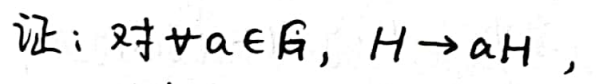 证：对∀a∈G，H→aH，